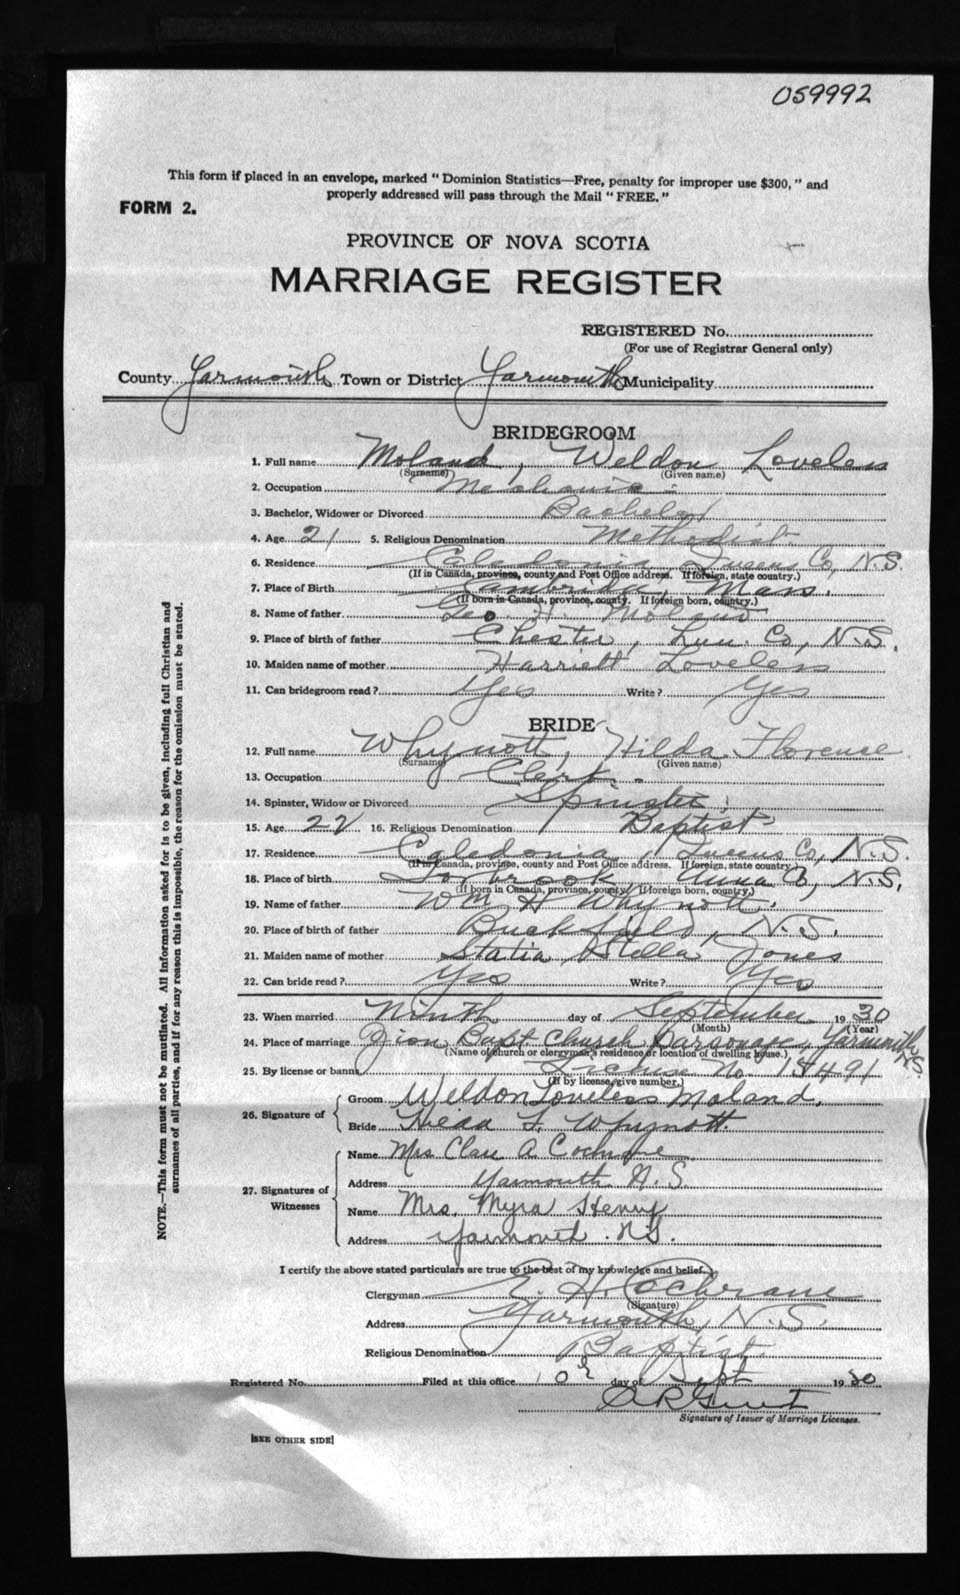 059992
This form if placed in an envelope, marked "Dominion Statistics—Free, penalty for improper use $300," and
properly addressed will pass through the Mail "FREE."
FORM 2.
PROVINCE OF NOVA SCOTIA
MARRIAGE REGISTER
REGISTERED No.
(For use of Registrar General only)
County Yarmouth Town or District Yarmouth Municipality
BRIDEGROOM
1. Full name Moland, Weldon Loveless
(Surname) (Given name)
2. Occupation Mechanic -
3. Bachelor, Widower or Divorced Bachelor
4. Age 21 5. Religious Denomination Methodist
6. Residence Caledonia Queens Co, N.S.
(If in Canada, province, county and Post Office address. If foreign, state country.)
7. Place of Birth Cambridge, Mass.
(If born in Canada, province, county. If foreign born, country.)
8. Name of father Geo. H. Moland
9. Place of birth of father Chester, Lun. Co, N.S.
10. Maiden name of mother Harriett Loveless
11. Can bridegroom read? Yes Write? Yes
BRIDE
12. Full name Whynott, Hilda Florence
(Surname) (Given name)
13. Occupation Clerk -
14. Spinster, Widow or Divorced Spinster
15. Age 22 16. Religious Denomination Baptist
17. Residence Caledonia, Queens Co, N.S.
(If in Canada, province, county and Post Office address. If foreign, state country.)
18. Place of birth Torbrook, Anna Co, N.S.
(If born in Canada, province, county. If foreign born, country.)
19. Name of father Wm H Whynott.
20. Place of birth of father Buckfield, N.S.
21. Maiden name of mother Statia Stella Jones
22. Can bride read? Yes Write? Yes
23. When married Ninth day of September 1930
(Month) (Year)
24. Place of marriage Zion Bapt Church Parsonage, Yarmouth N.S.
(Name of church or clergyman's residence or location of dwelling house.)
25. By license or banns License No 15491
(If by license, give number.)
26. Signature of
Groom Weldon Loveless Moland.
Bride Hilda F. Whynott.
27. Signatures of Witnesses
Name Mrs. Clare A Cochrane
Address Yarmouth N.S.
Name Mrs. Myra Henry
Address Yarmouth. N.S.
I certify the above stated particulars are true to the best of my knowledge and belief.
Clergyman E. H. Cochrane
(Signature)
Address Yarmouth, N.S.
Religious Denomination Baptist
Registered No. Filed at this office 10th day of Sept 1930
Signature of Issuer of Marriage Licenses.
[SEE OTHER SIDE]
NOTE.—This form must not be mutilated. All information asked for is to be given, including full Christian and
surnames of all parties, and if for any reason this is impossible, the reason for the omission must be stated.